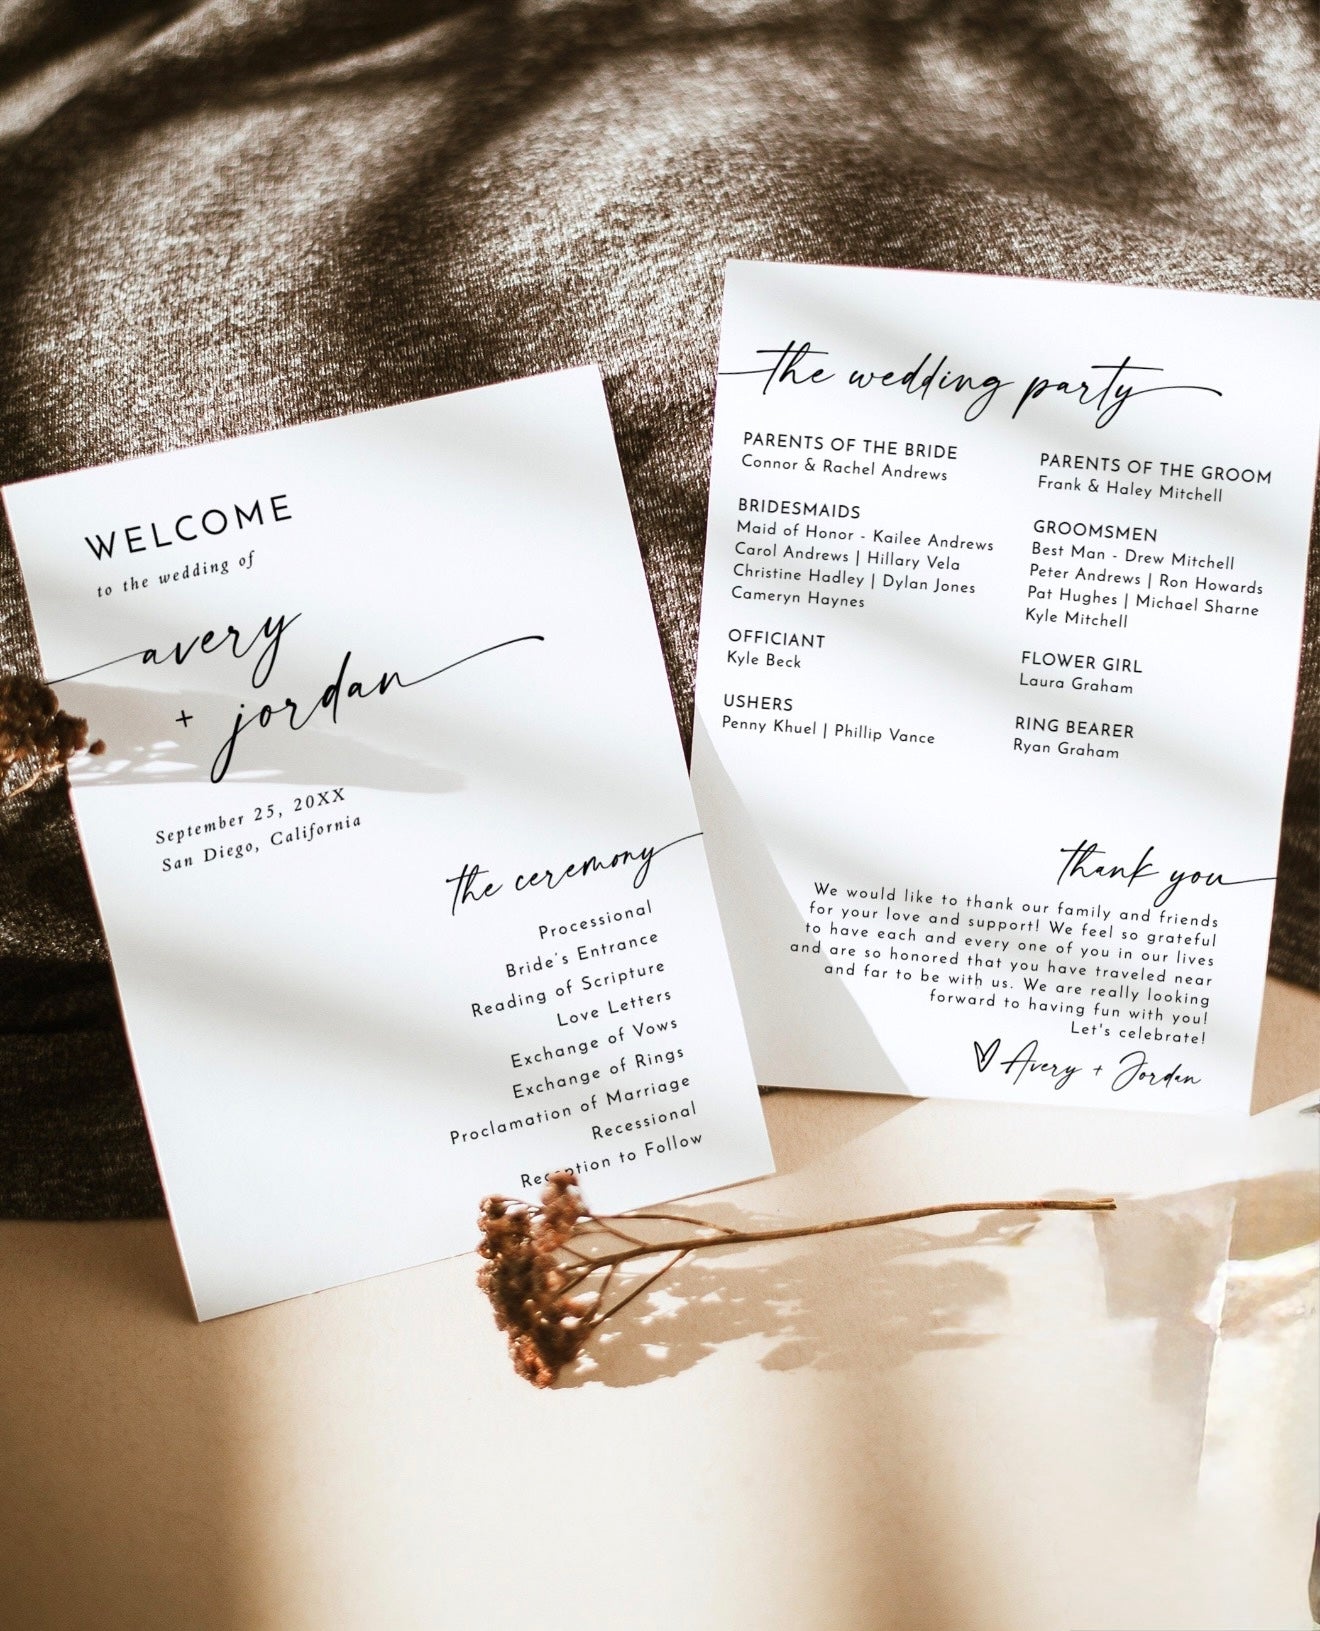 WELCOME
to the wedding of
avery
+ jordan
September 25, 20XX
San Diego, California
the ceremony
Processional
Bride's Entrance
Reading of Scripture
Love Letters
Exchange of Vows
Exchange of Rings
Proclamation of Marriage
Recessional
Reception to Follow
the wedding party
PARENTS OF THE BRIDE
Connor & Rachel Andrews
BRIDESMAIDS
Maid of Honor - Kailee Andrews
Carol Andrews | Hillary Vela
Christine Hadley | Dylan Jones
Cameryn Haynes
OFFICIANT
Kyle Beck
USHERS
Penny Khuel | Phillip Vance
PARENTS OF THE GROOM
Frank & Haley Mitchell
GROOMSMEN
Best Man - Drew Mitchell
Peter Andrews | Ron Howards
Pat Hughes | Michael Sharne
Kyle Mitchell
FLOWER GIRL
Laura Graham
RING BEARER
Ryan Graham
thank you
We would like to thank our family and friends
for your love and support! We feel so grateful
to have each and every one of you in our lives
and are so honored that you have traveled near
and far to be with us. We are really looking
forward to having fun with you!
Let's celebrate!
Avery + Jordan